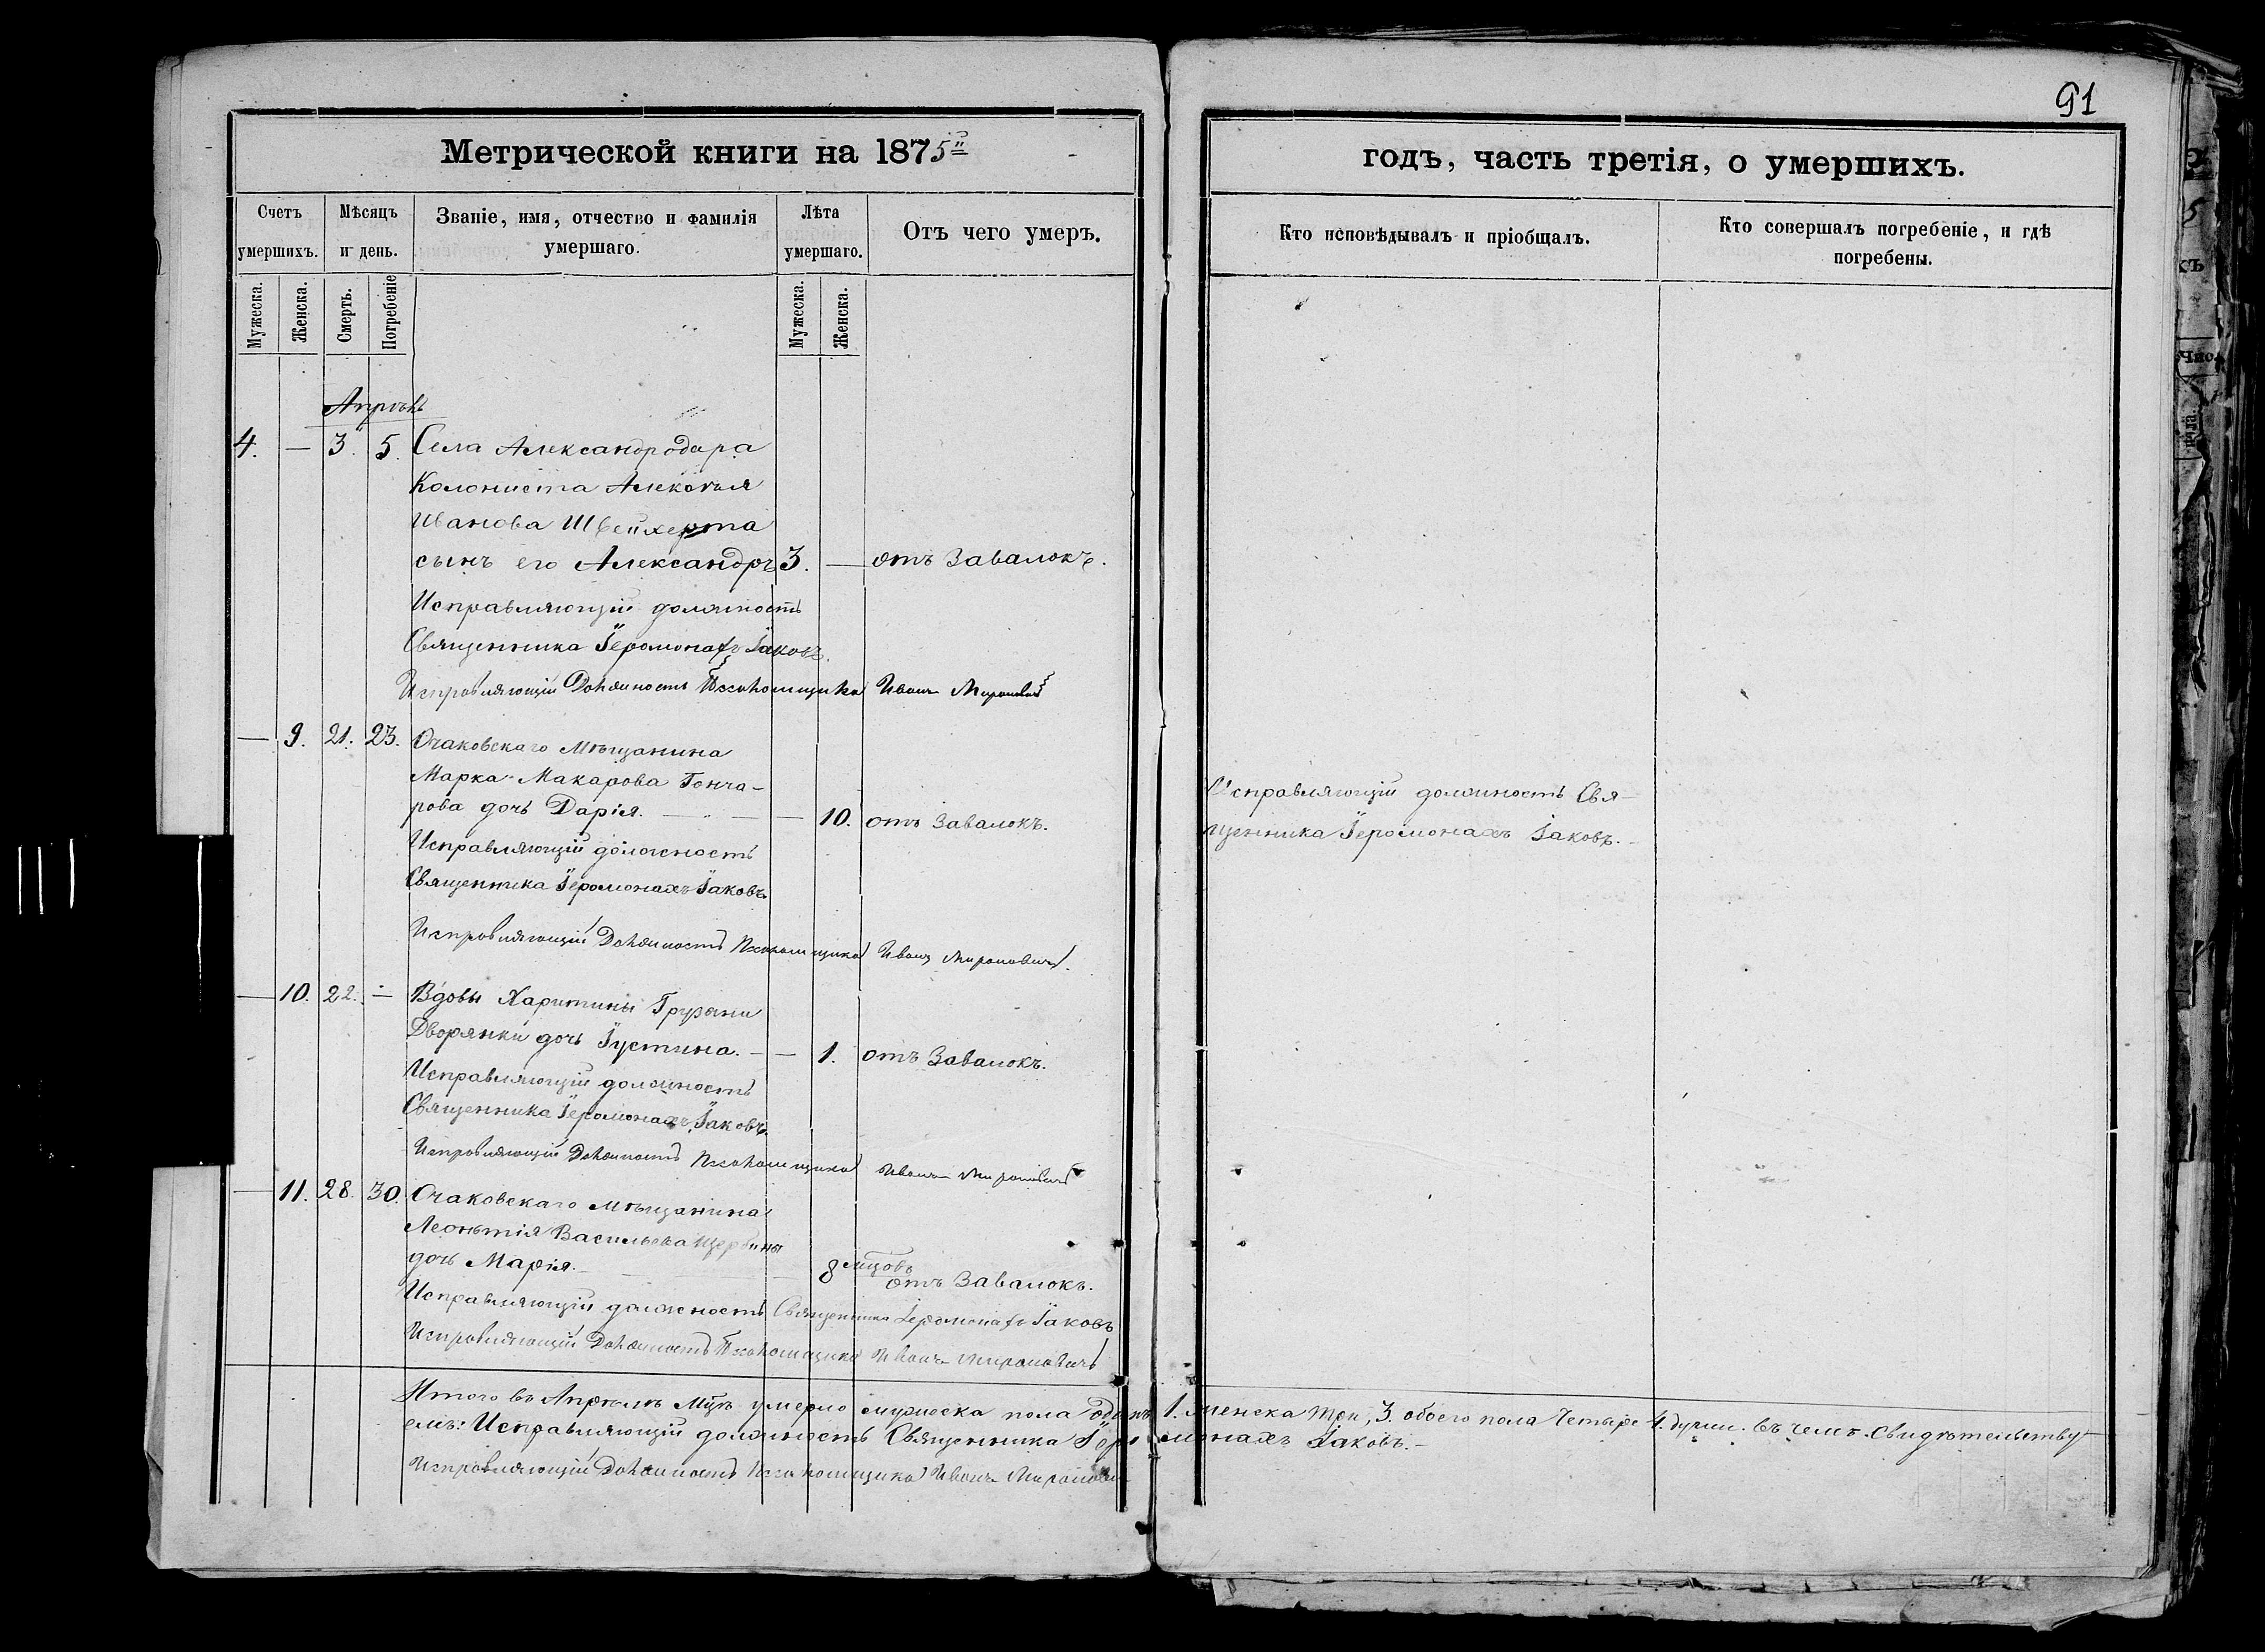 91
Метрической книги на 1875й
годъ, часть третія, о умершихъ.
Счетъ умершихъ.
Мѣсяцъ и день.
Званіе, имя, отчество и фамилія умершаго.
Лѣта умершаго.
Отъ чего умеръ.
Кто исповѣдывалъ и пріобщалъ.
Кто совершалъ погребеніе, и гдѣ погребены.
Мужеска.
Женска.
Смерть.
Погребеніе
Мужеска.
Женска.
Апрѣль
4. — 3. 5. Села Александродара
Колониста Алексѣя
Иванова Швейхерта
сынъ его Александръ 3. — отъ Завалокъ.
Исправляющій должность
Священника Іеромонахъ Іаковъ.
Исправляющій Должность Псаломщика Иванъ Мироновичъ
— 9. 21. 23. Очаковскаго Мѣщанина
Марка Макарова Гонча-
рова дочь Дарія. — 10. отъ Завалокъ.
Исправляющій должность
Священника Іеромонахъ Іаковъ.
Исправляющій Должность Псаломщика Иванъ Мироновичъ.
Исправляющій должность Свя-
щенника Іеромонахъ Іаковъ.
— 10. 22. — Вдовы Харитины
Дворянки дочь Іустина. — — 1. отъ Завалокъ.
Исправляющій должность
Священника Іеромонахъ Іаковъ.
Исправляющій Должность Псаломщика Иванъ Мироновичъ
— 11. 28. 30. Очаковскаго мѣщанина
Леонътія Васильева Щербины
дочь Марія. — 8 мцовъ отъ Завалокъ.
Исправляющій должность Священника Іеромонахъ Іаковъ
Исправляющій Должность Псаломщика Иванъ Мироновичъ
Итого въ Апрѣлѣ Мцѣ умерло мужеска пола одинъ 1. женска три, 3. обоего пола Четыре 4. души. въ чемъ свидѣтельству-
емъ: Исправляющій должность Священника Іеромонахъ Іаковъ.—
Исправляющій Должность Псаломщика Иванъ Миронович